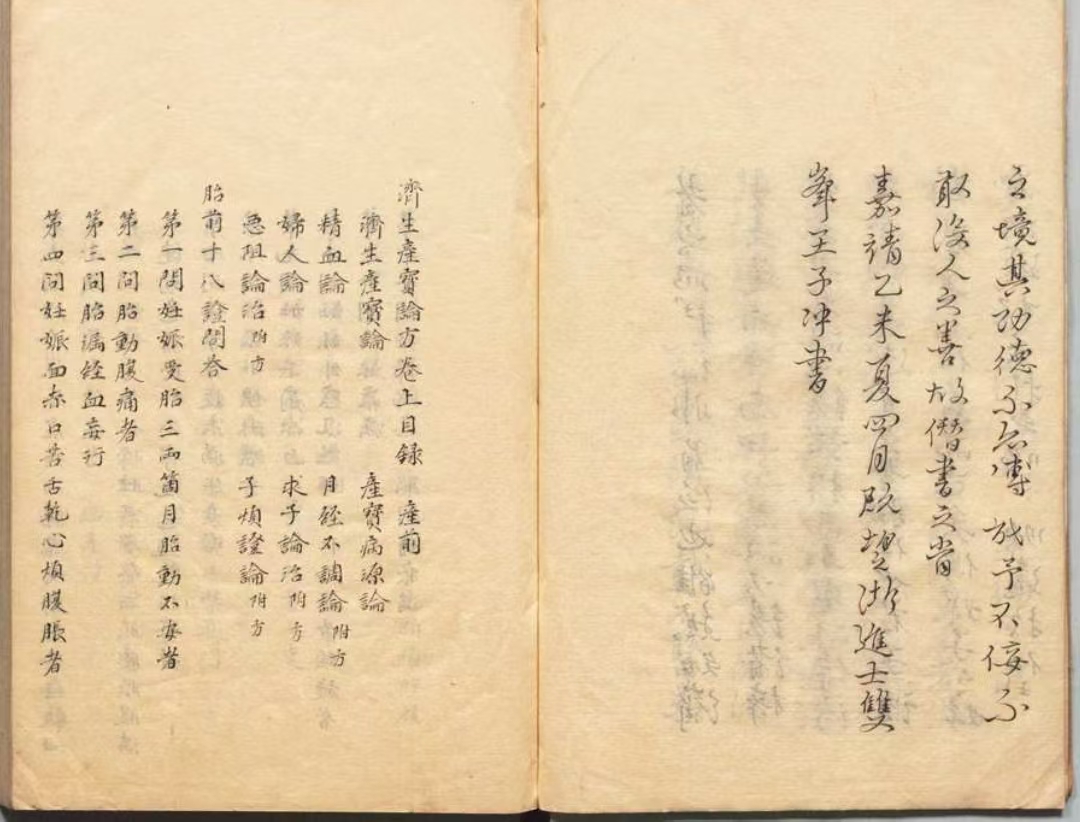 之境其功德不亦博哉予不佞不
敢沒人之善故僭書之昔
嘉靖乙未夏四月既望浙進士雙
峯王子冲書
濟生產寶論方卷上目錄 產前
濟生產寶論 產寶病源論
精血論 月經不調論附方
婦人論 求子論治附方
惡阻論治附方 子煩證論附方
胎前十八證問答
第一問妊娠受胎三兩箇月胎動不安者
第二問胎動腹痛者
第三問胎漏經血妄行
第四問妊娠面赤口苦舌乾心煩腹脹者